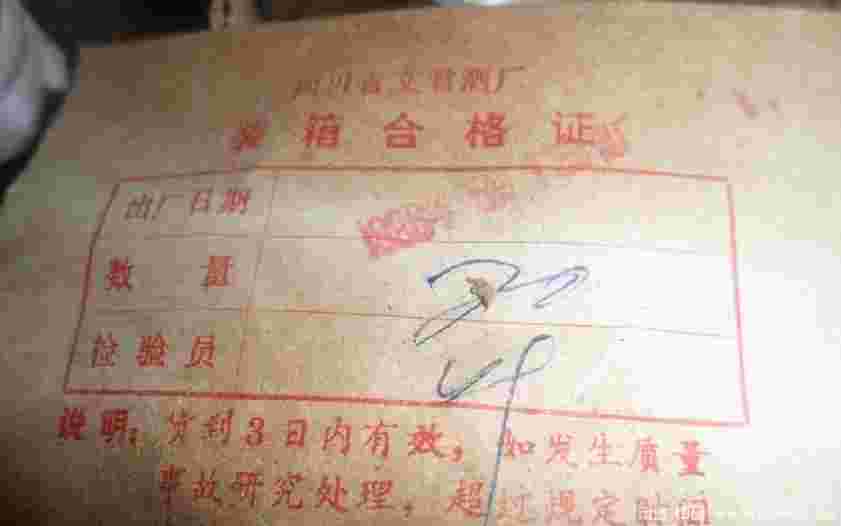 四川省文君酒厂
装箱合格证
出厂日期
数量
检验员
说明：货到3日内有效，如发生质量
事故研究处理，超过规定时间